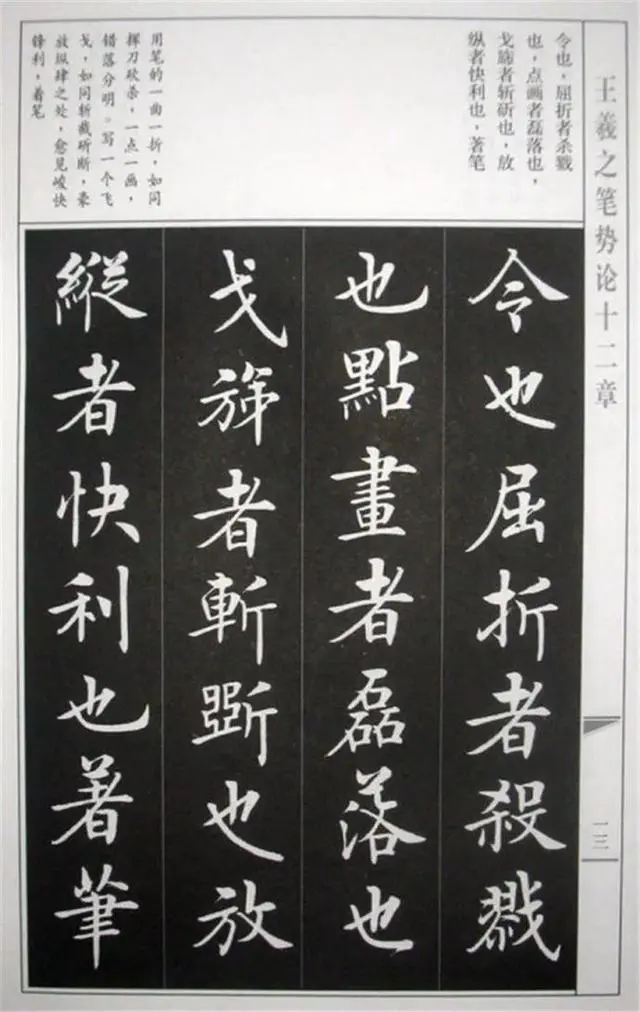 王羲之笔势论十二章
一三
令也，屈折者杀戮
也，点画者磊落也，
戈旆者斩斫也，放
纵者快利也，著笔
用笔的一曲一折，如同
挥刀砍杀，一点一画，
错落分明。写一个飞
戈，如同斩截斫断，豪
放纵肆之处，愈见峻快
锋利，着笔
令也屈折者殺戮
也點畫者磊落也
戈斾者斬斲也放
縱者快利也著筆